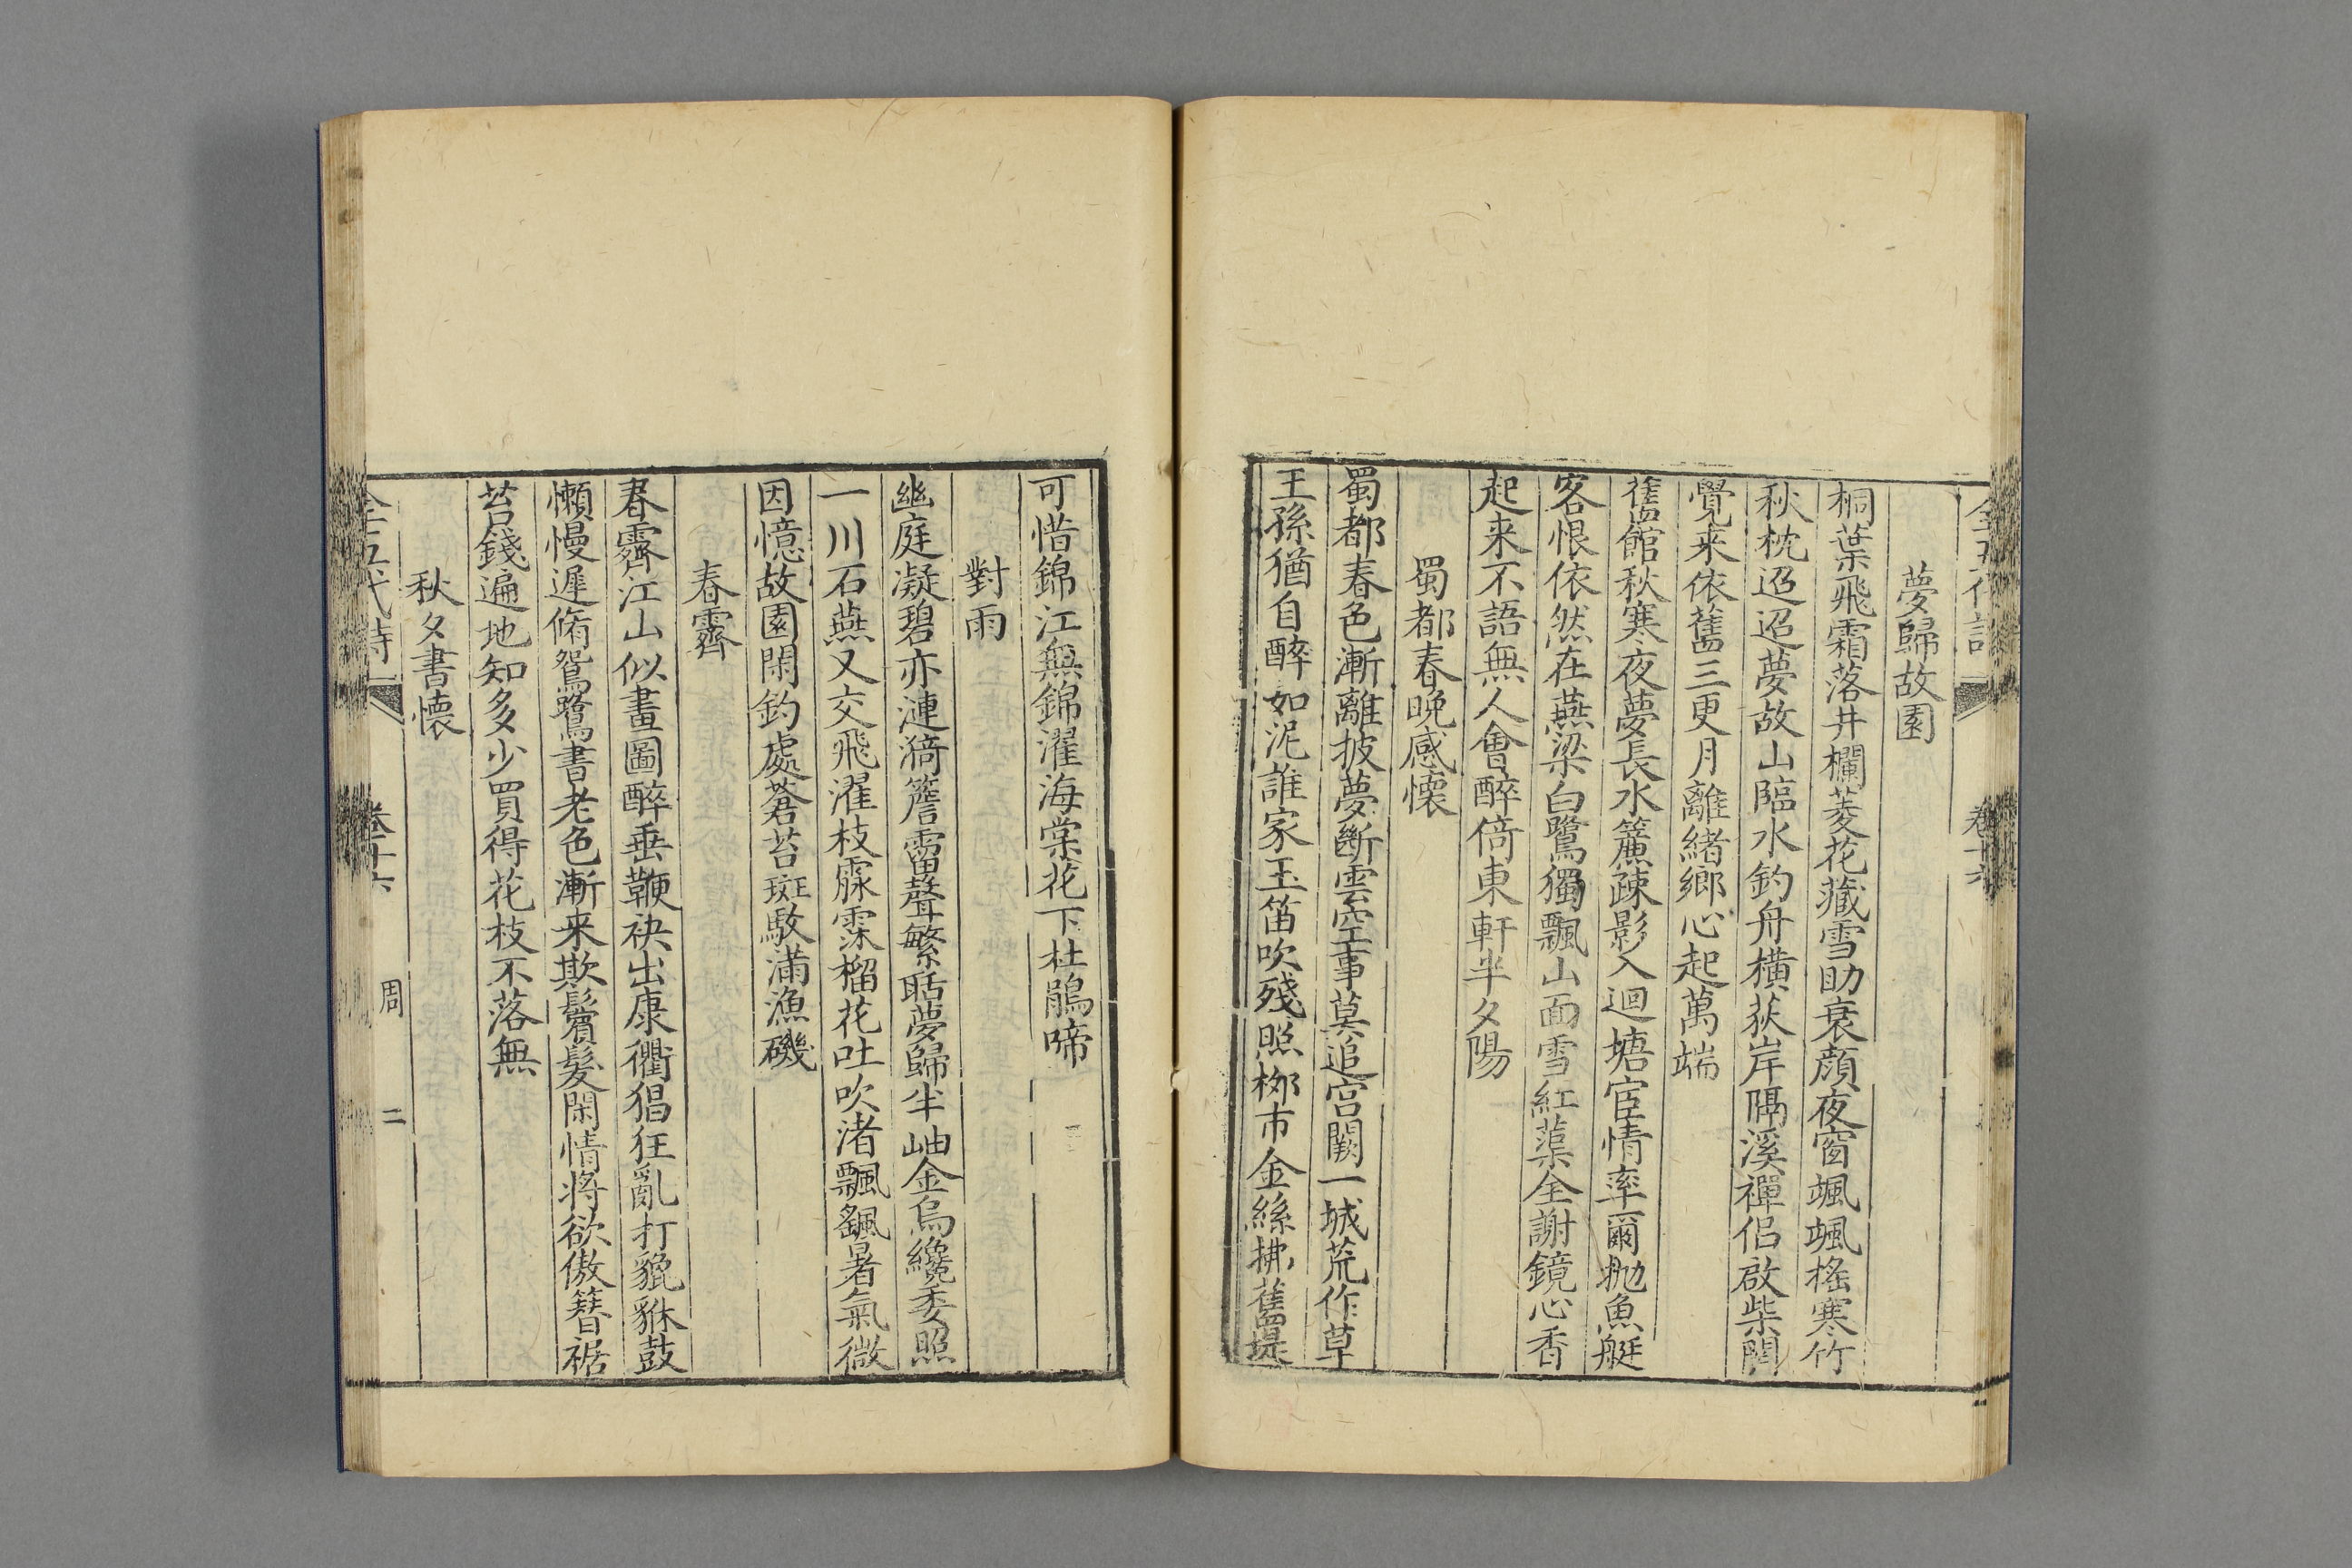 夢歸故園
桐葉飛霜落井欄菱花藏雪助衰顔夜窗颯颯搖寒竹
秋枕迢迢夢故山臨水釣舟橫荻岸隔溪禪侶啟柴關
覺来依舊三更月離緒鄉心起萬端
舊館秋寒夜夢長水簾疎影入迴塘宦情率爾抛魚艇
客恨依然在燕梁白鷺獨飄山面雪紅蕖全謝鏡心香
起来不語無人會醉倚東軒半夕陽
蜀都春晚感懷
蜀都春色漸離披夢斷雲空事莫追宮闕一城荒作草
王孫猶自醉如泥誰家玉笛吹殘照栁市金絲拂舊堤
可惜錦江無錦濯海棠花下杜鵑啼
對雨
幽庭凝碧亦漣漪簷霤聲繁聒夢歸半岫金烏纔委照
一川石燕又交飛濯枝霡霂榴花吐吹渚飄颻暑氣微
因憶故園閑釣處蒼苔斑駮滿漁磯
春霽
春霽江山似畫圖醉垂鞭袂出康衢猖狂亂打貔貅鼓
懶慢遲脩鴛鷺書老色漸来欺鬢髮閑情將欲傲簪裾
苔錢遍地知多少買得花枝不落無
秋夕書懷
全五代詩 卷十六 周 二